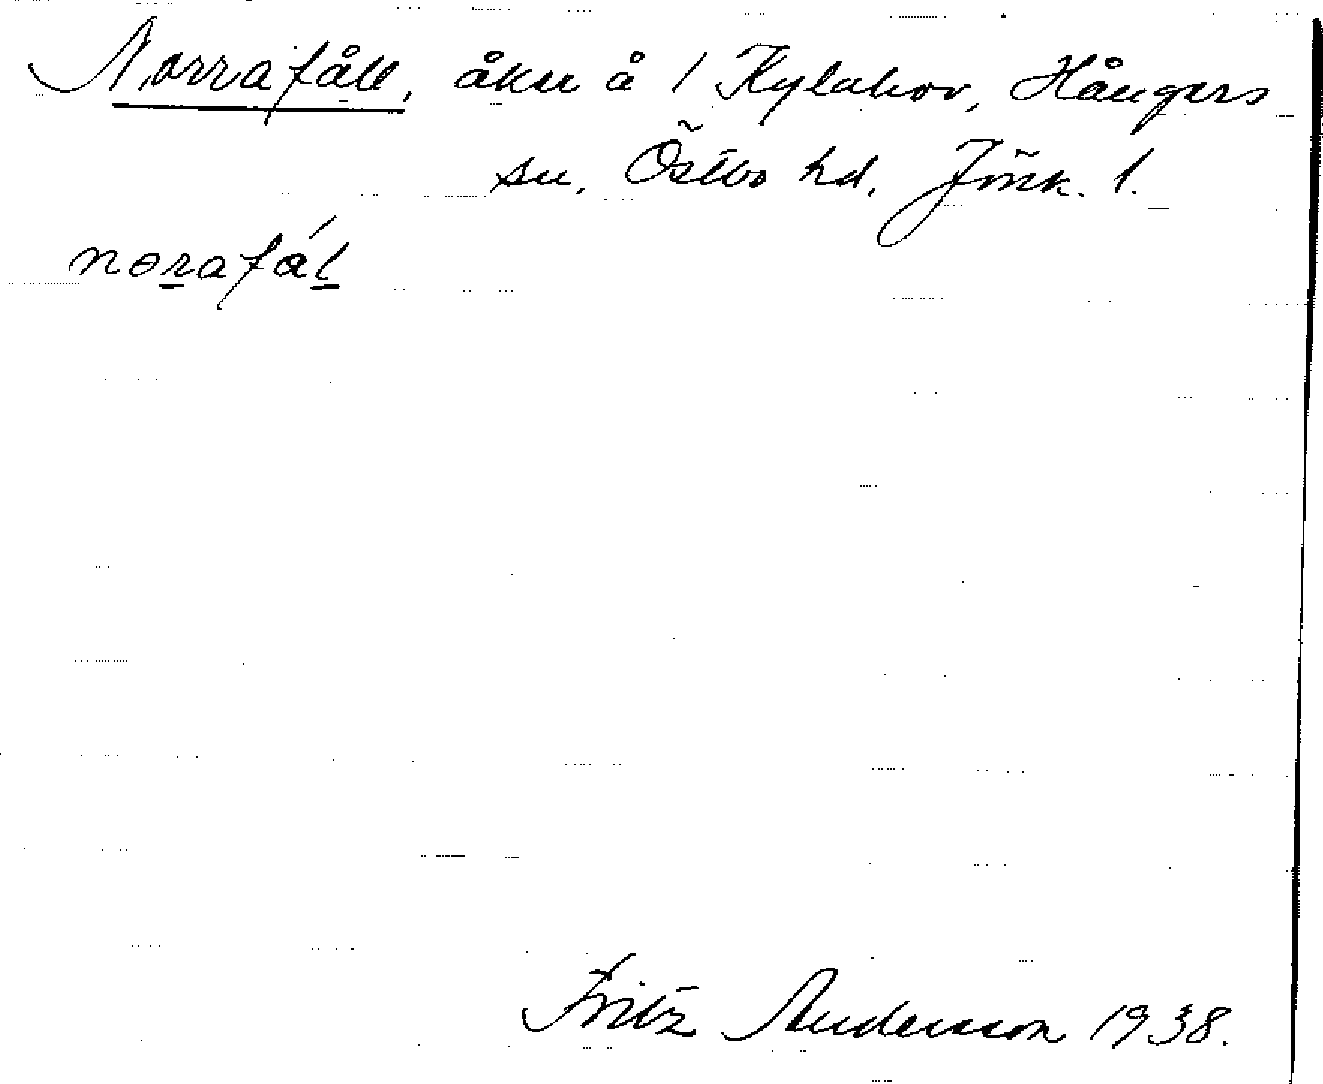 Norrafåll, åker å 1 Kylahov, Hångers
sn, Östbo hd, Jönk. l.
norafål
Fritz Andersson 1938.